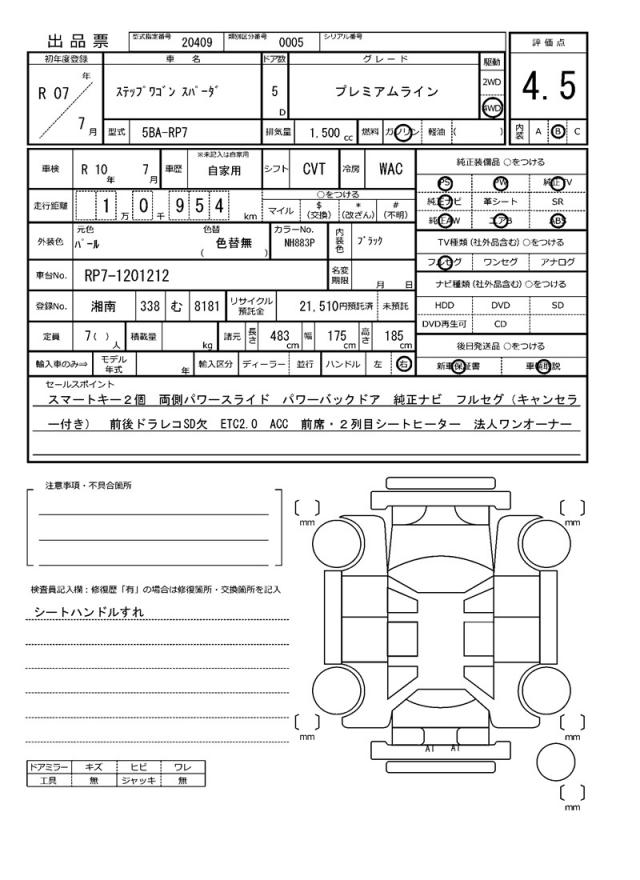 出品票 型式指定番号 20409 類別区分番号 0005 シリアル番号
評価点
4.5
内装 A B C
初年度登録 車名 ドア数 グレード 駆動
R 07 年 7 月
ステップワゴン スパーダ 5 D プレミアムライン 2WD 4WD
型式 5BA-RP7 排気量 1.500 cc 燃料 ガソリン 軽油 ( )
車検 R 10 年 7 月 車歴 ※未記入は自家用 自家用 シフト CVT 冷房 WAC
走行距離 1 万 0 千 9 5 4 km ○をつける マイル $(交換) *(改ざん) #(不明)
外装色 元色 パール 色替 ( 色替無 ) カラーNo. NH883P 内装色 ブラック
車台No. RP7-1201212 名変期限 月 日
登録No. 湘南 338 む 8181 リサイクル預託金 21,510円預託済 未預託
定員 7( )人 積載量 kg 諸元 長さ 483 cm 幅 175 cm 高さ 185 cm
輸入車のみ⇒ モデル年式 年 輸入区分 ディーラー 並行 ハンドル 左 右
純正装備品 ○をつける
PS PW 純正TV
純正ナビ 革シート SR
純正AW エアB ABS
TV種類 (社外品含む) ○をつける
フルセグ ワンセグ アナログ
ナビ種類 (社外品含む) ○をつける
HDD DVD SD
DVD再生可 CD
後日発送品 ○をつける
新車保証書 車輌取説
セールスポイント
スマートキー２個 両側パワースライド パワーバックドア 純正ナビ フルセグ（キャンセラ
ー付き） 前後ドラレコSD欠 ETC2.0 ACC 前席・２列目シートヒーター 法人ワンオーナー
注意事項・不具合箇所
検査員記入欄：修復歴「有」の場合は修復箇所・交換箇所を記入
シートハンドルすれ
ドアミラー キズ ヒビ ワレ
工具 無 ジャッキ 無
mm mm
mm mm
A1 A1
mm